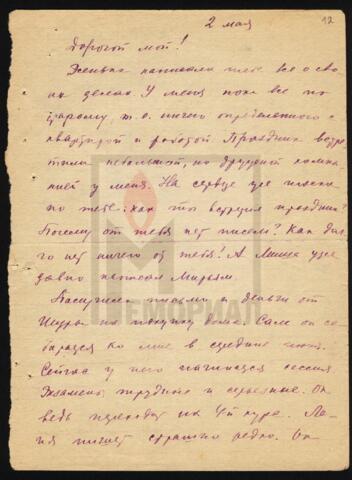 2 мая
12
Дорогой мой!
Женька написала тебе все о сво-
их делах У меня пока все по
старому т.е. ничего определенного с
квартирой и работой. Праздник встре-
тили небольшой, но дружной компа-
нией у меня. На сердце уже
по тебе: как ты встретил праздник?
Почему от тебя нет писем? Как дол-
го нет ничего от тебя! А Мише уже
давно написал Мирьям.
письмо и деньги от
Шуры на покупку дома. Сам он со-
бирался ко мне в средине июля.
Сейчас у него начинается сессия
Экзамены трудные и серьезные. Он
ведь переходит на 4й курс.
пишет страшно редко. Он
МЕМОРИАЛ